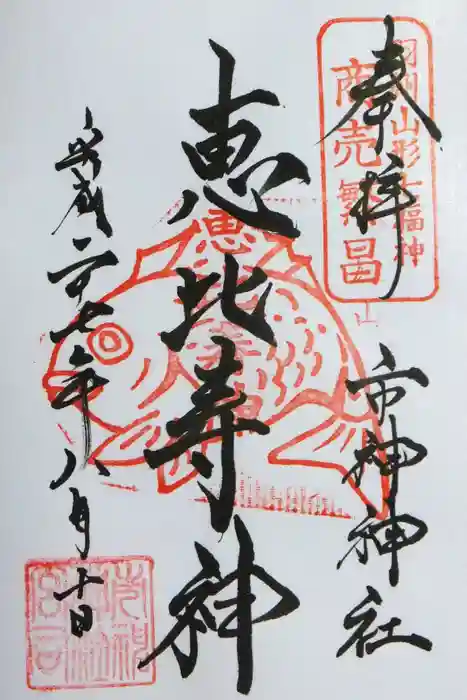 奉拝
羽州山形七福神
商売繁昌
市神神社
恵比寿神
平成二十七年八月十日